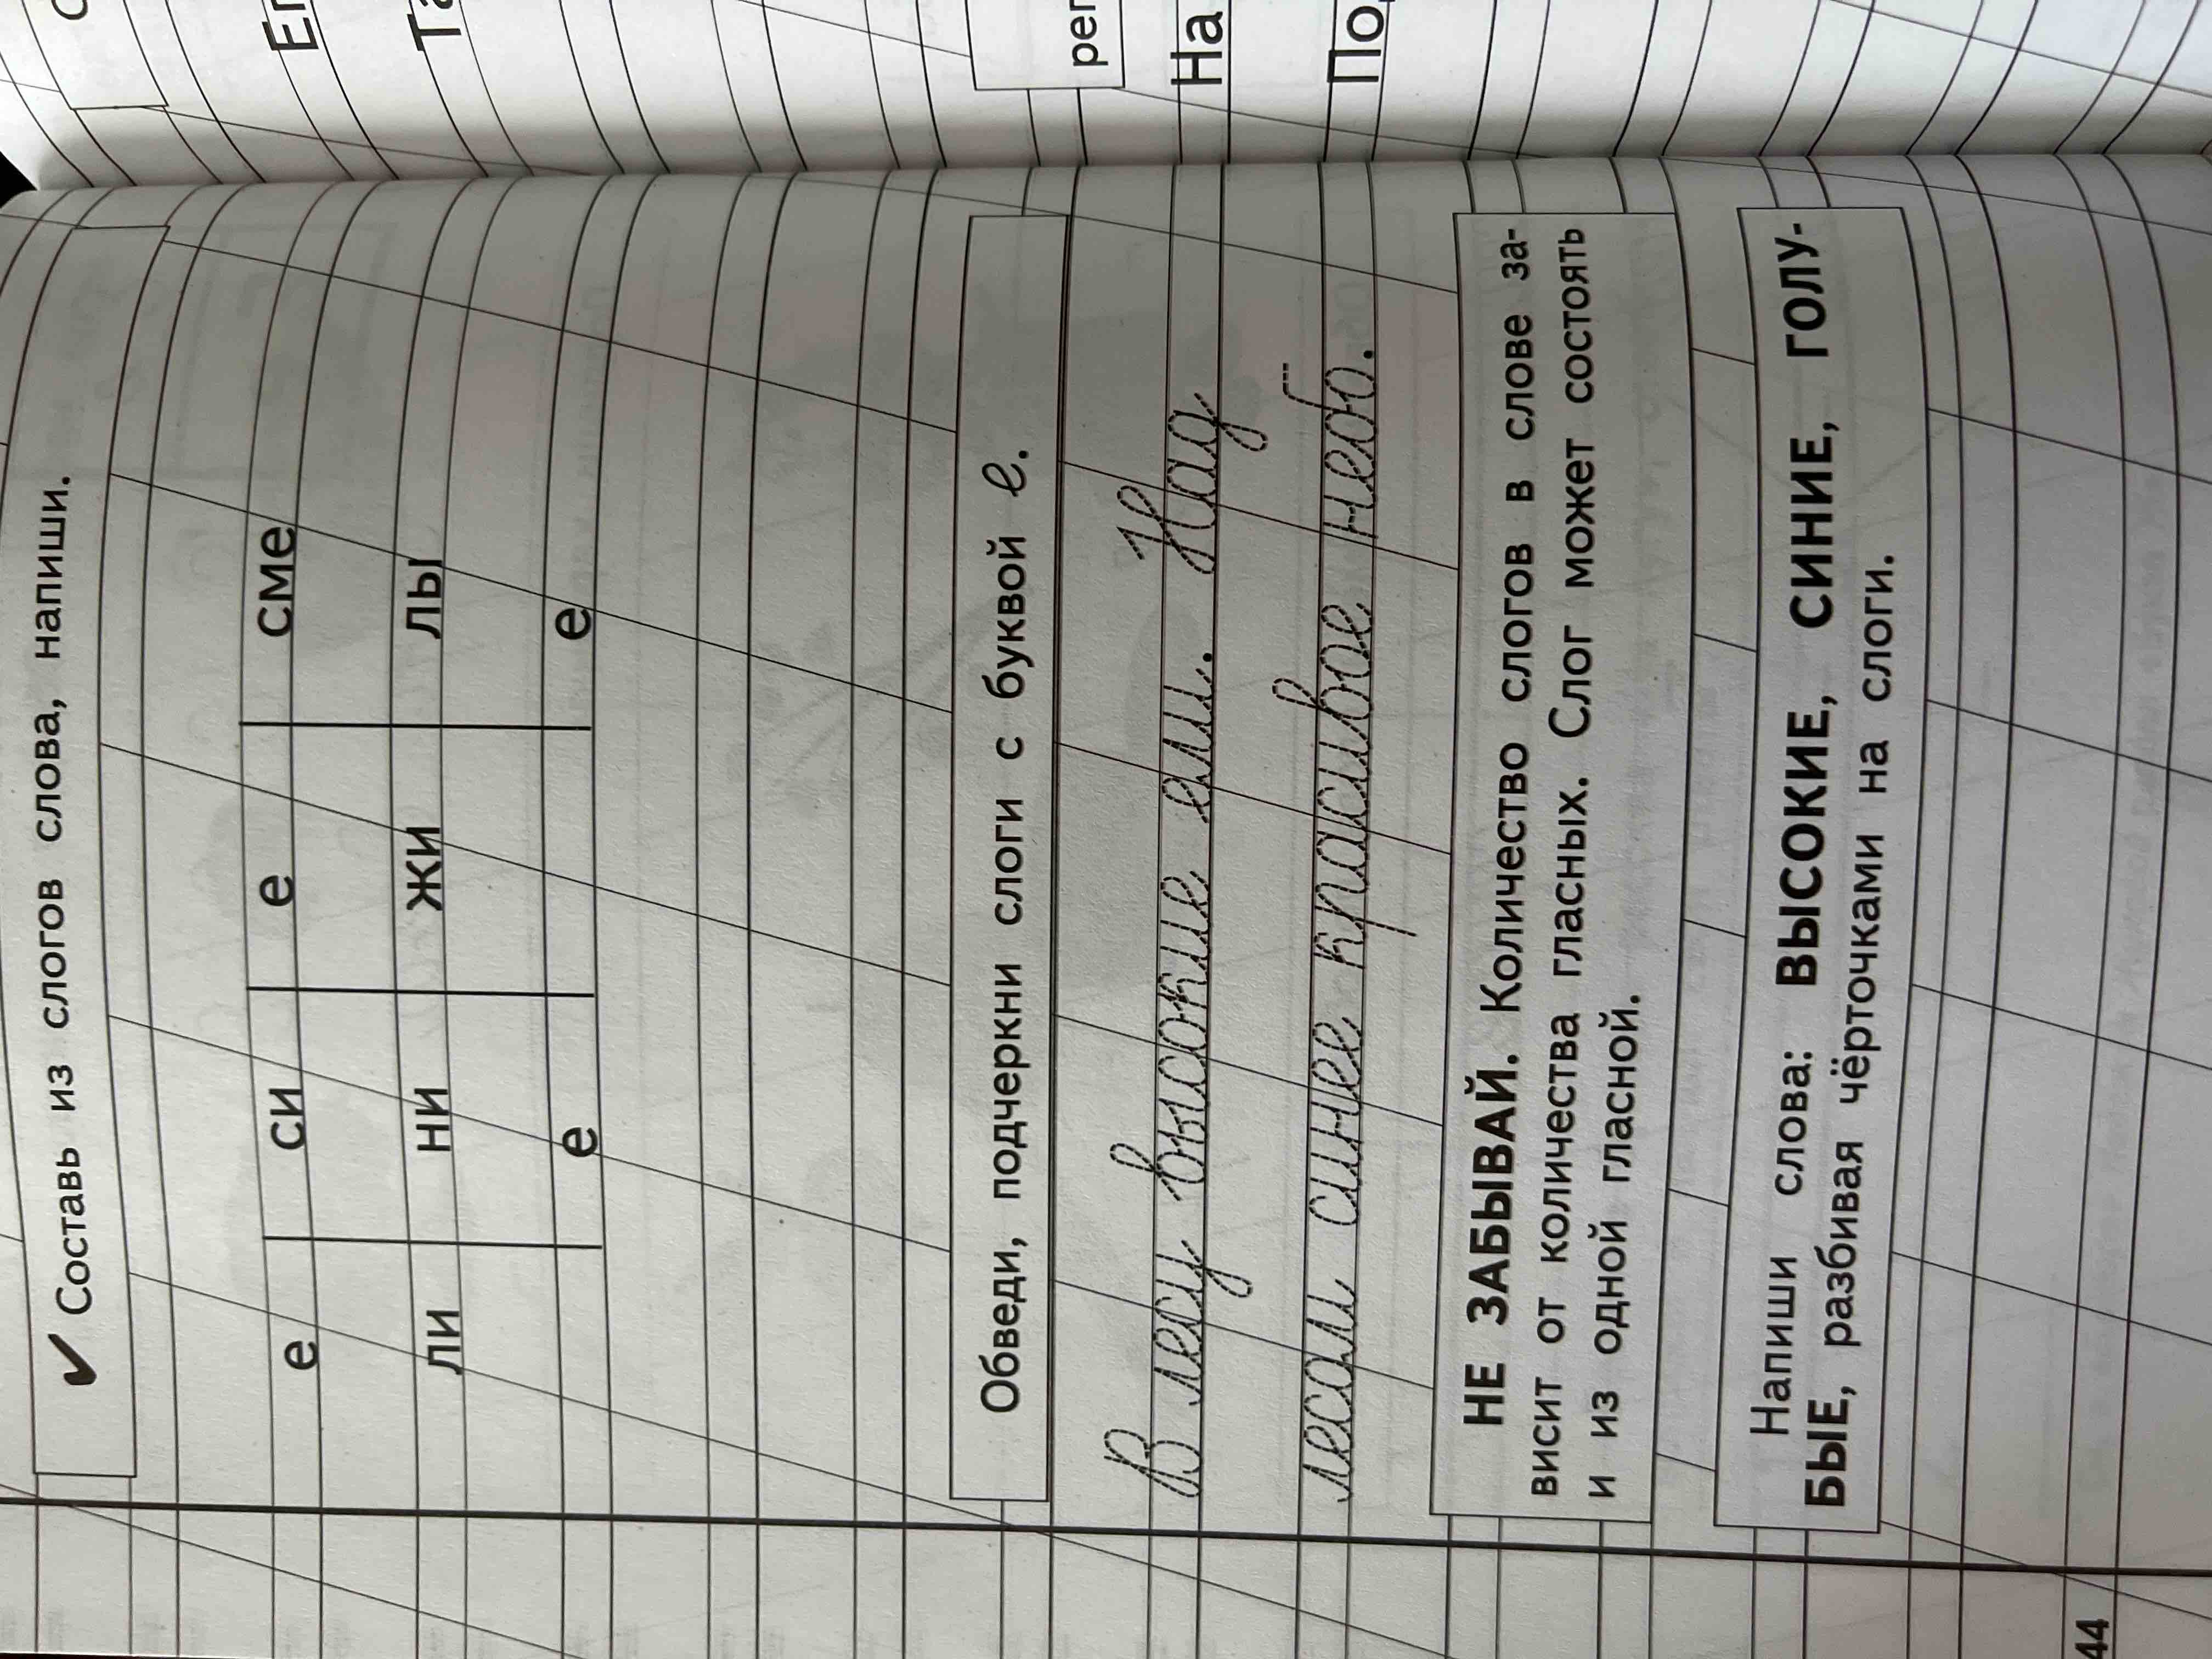 ✔ Составь из слогов слова, напиши.
е си е сме
ли ни жи лы
е е
Обведи, подчеркни слоги с буквой е.
В лесу высокие ели. Над
лесом синее красивое небо.
НЕ ЗАБЫВАЙ. Количество слогов в слове за-
висит от количества гласных. Слог может состоять
и из одной гласной.
Напиши слова: ВЫСОКИЕ, СИНИЕ, ГОЛУ-
БЫЕ, разбивая чёрточками на слоги.
44
На